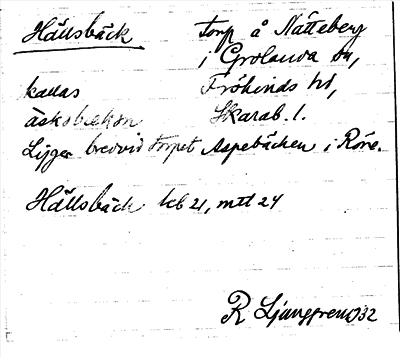 Hällsbäck torp å Nätteberg
i Grolanda sn,
kallas Frökinds hd,
äskobækən Skarab. l.
Ligger bredvid torpet Aspebäcken i Röre.
Hällsbäck kb 21, mtl 24
R Ljunggren 1932